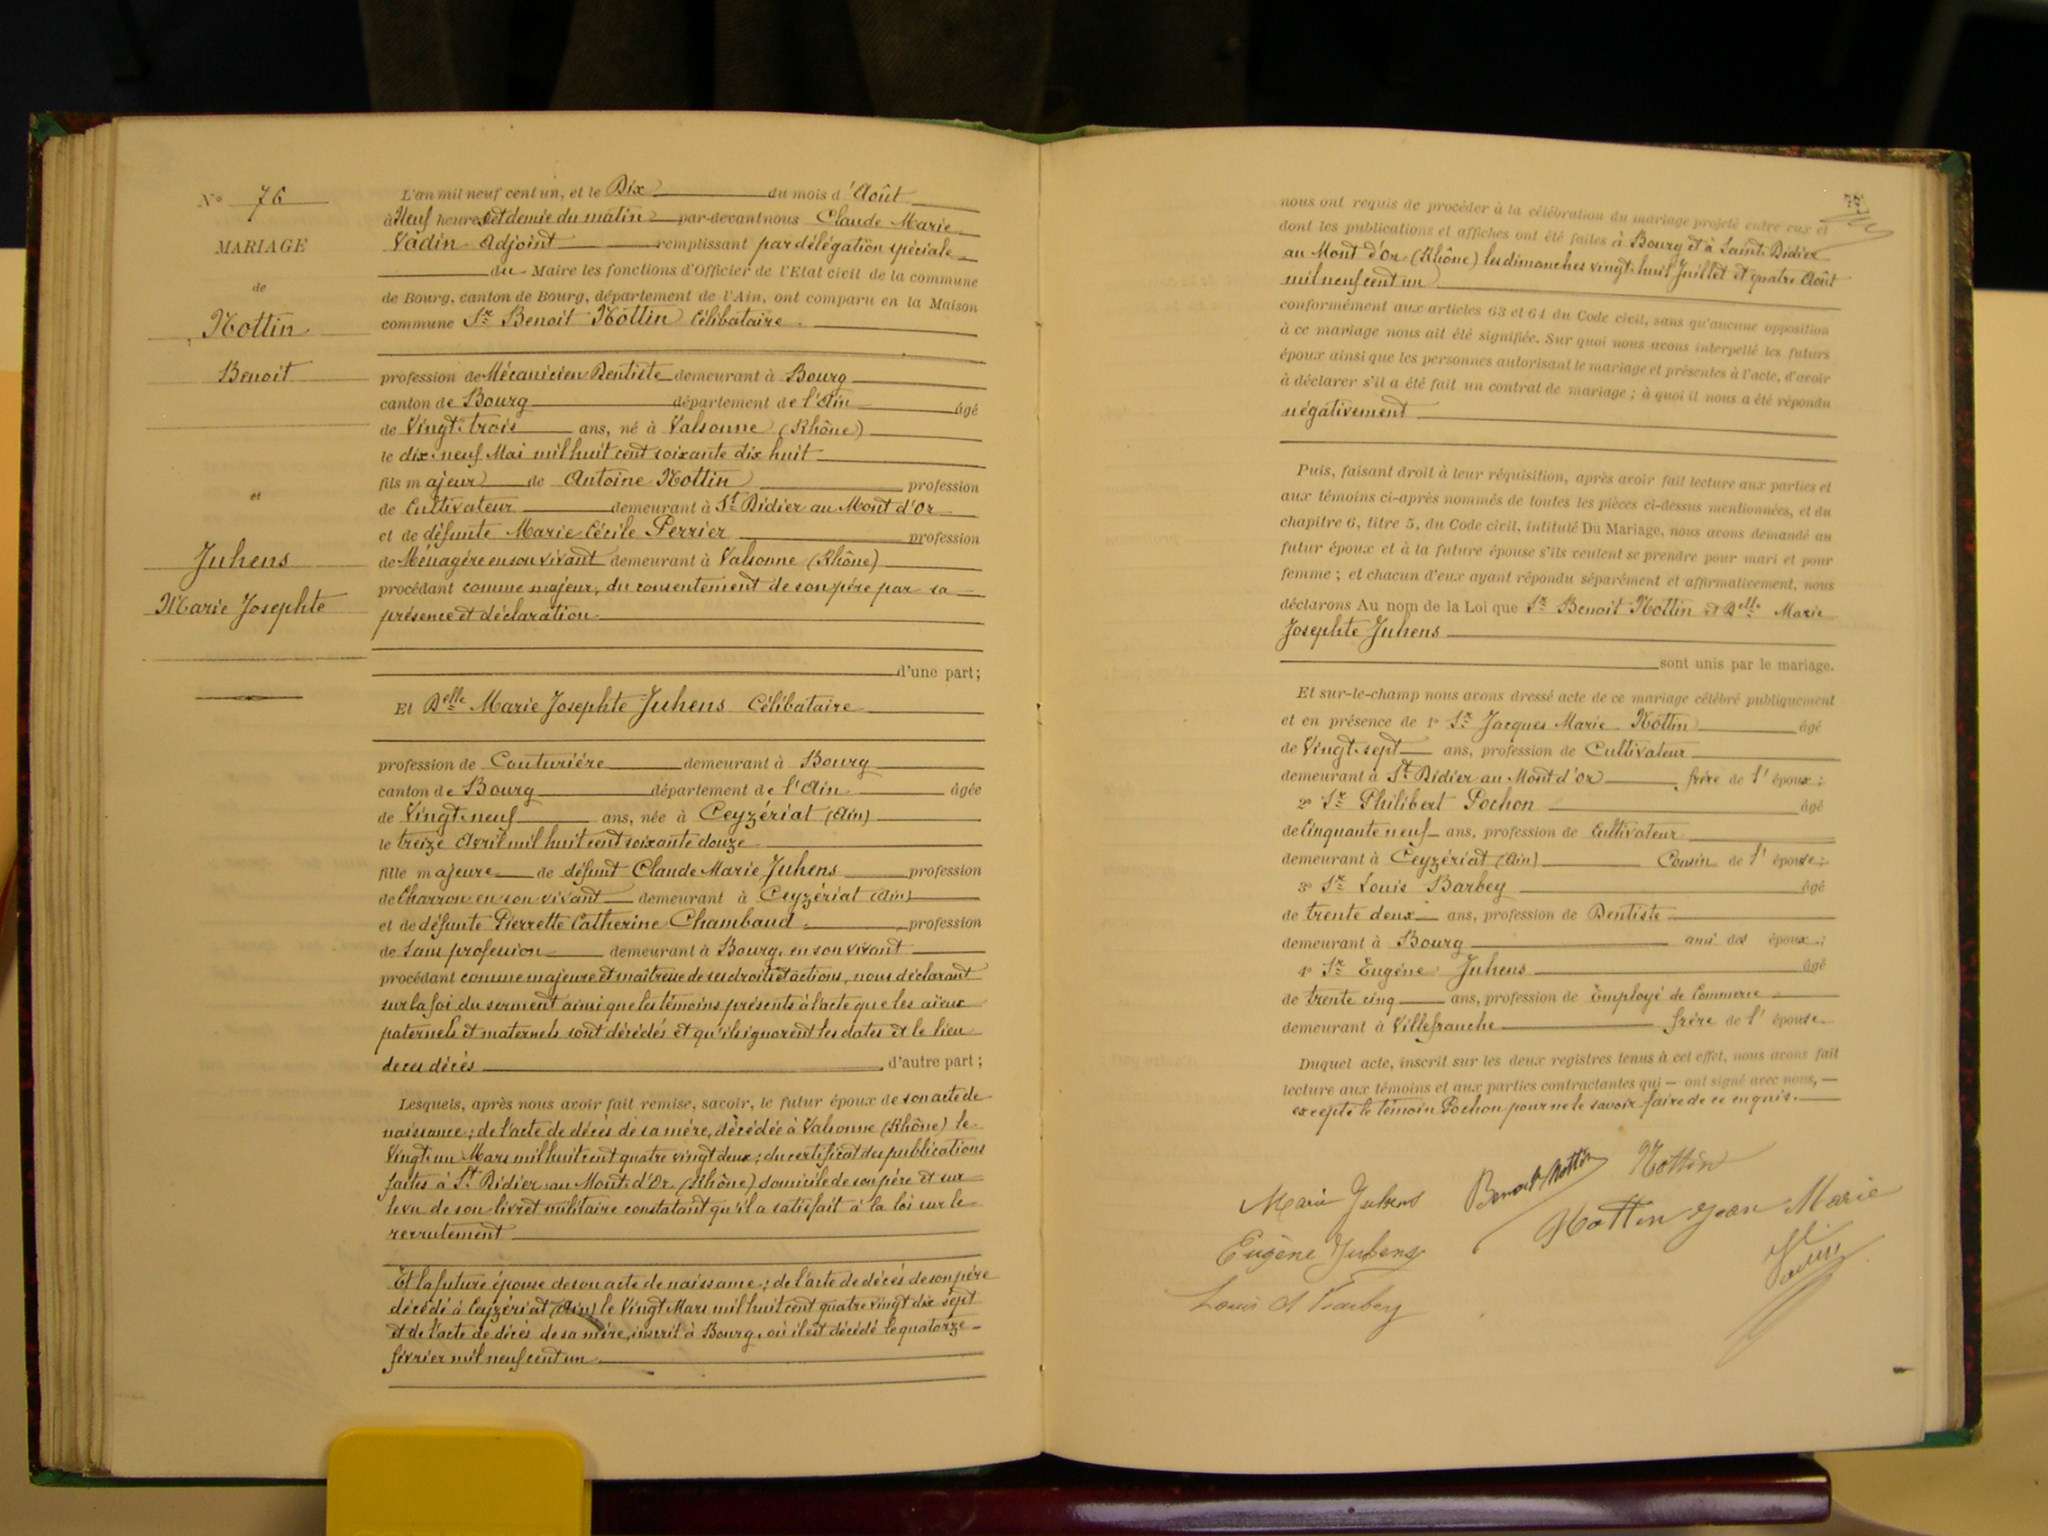 Nº 76
MARIAGE
de
Nottin
Benoit
et
Juhens
Marie Josephte
L'an mil neuf cent un, et le Dix du mois d'Août
à Neuf heures et demie du matin par-devant nous Claude Marie
Vadin Adjoint remplissant par délégation spéciale
du Maire les fonctions d'Officier de l'Etat civil de la commune
de Bourg, canton de Bourg, département de l'Ain, ont comparu en la Maison
commune Sr Benoit Nottin Célibataire
profession de Mécanicien Dentiste demeurant à Bourg
canton de Bourg département de l'Ain âgé
de Vingt-trois ans, né à Valsonne (Rhône)
le dix-neuf Mai mil huit cent soixante dix huit
fils majeur de Antoine Nottin profession
de Cultivateur demeurant à St Didier au Mont d'Or
et de défunte Marie Cécile Perrier profession
de Ménagère en son vivant demeurant à Valsonne (Rhône)
procédant comme majeur, du consentement de son père par sa
présence et déclaration
d'une part;
Et Delle Marie Josephte Juhens Célibataire
profession de Couturière demeurant à Bourg
canton de Bourg département de l'Ain âgée
de Vingt-neuf ans, née à Ceyzériat (Ain)
le treize Avril mil huit cent soixante douze
fille majeure de défunt Claude Marie Juhens profession
de Charron en son vivant demeurant à Ceyzériat (Ain)
et de défunte Pierrette Catherine Chambaud profession
de Sans profession demeurant à Bourg, en son vivant
procédant comme majeure et maîtresse de ses droits et actions, nous déclarant
sur la foi du serment ainsi que les témoins présents à l'acte que les aïeux
paternels et maternels sont décédés et qu'ils ignorent les dates et le lieu
de ces décès d'autre part;
Lesquels, après nous avoir fait remise, savoir, le futur époux de son acte de
naissance; de l'acte de décès de sa mère, décédée à Valsonne (Rhône) le
Vingt-un Mars mil huit cent quatre vingt deux; du certificat des publications
faites à St Didier au Mont d'Or (Rhône) domicile de son père et sur
le vu de son livret militaire constatant qu'il a satisfait à la loi sur le
recrutement
Et la future épouse de son acte de naissance; de l'acte de décès de son père
décédé à Ceyzériat (Ain) le Vingt Mars mil huit cent quatre vingt dix sept
et de l'acte de décès de sa mère, inscrit à Bourg, où il est décédé le quatorze
février mil neuf cent un
77
nous ont requis de procéder à la célébration du mariage projeté entre eux et
dont les publications et affiches ont été faites à Bourg et à Saint-Didier
au Mont d'Or (Rhône) les dimanches vingt-huit Juillet et quatre Août
mil neuf cent un
conformément aux articles 63 et 64 du Code civil, sans qu'aucune opposition
à ce mariage nous ait été signifiée. Sur quoi nous avons interpellé les futurs
époux ainsi que les personnes autorisant le mariage et présentes à l'acte, d'avoir
à déclarer s'il a été fait un contrat de mariage; à quoi il nous a été répondu
négativement
Puis, faisant droit à leur réquisition, après avoir fait lecture aux parties et
aux témoins ci-après nommés de toutes les pièces ci-dessus mentionnées, et du
chapitre 6, titre 5, du Code civil, intitulé Du Mariage, nous avons demandé au
futur époux et à la future épouse s'ils veulent se prendre pour mari et pour
femme; et chacun d'eux ayant répondu séparément et affirmativement, nous
déclarons Au nom de la Loi que Sr Benoit Nottin et Delle Marie
Josephte Juhens
sont unis par le mariage.
Et sur-le-champ nous avons dressé acte de ce mariage célébré publiquement
et en présence de 1º Sr Jacques Marie Nottin âgé
de Vingt-sept ans, profession de Cultivateur
demeurant à St Didier au Mont d'Or frère de l'époux;
2º Sr Philibert Pochon âgé
de Cinquante neuf ans, profession de Cultivateur
demeurant à Ceyzériat (Ain) Cousin de l'épouse;
3º Sr Louis Barbey âgé
de trente deux ans, profession de Dentiste
demeurant à Bourg ami des époux;
4º Sr Eugène Juhens âgé
de trente cinq ans, profession de Employé de Commerce
demeurant à Villefranche frère de l'épouse
Duquel acte, inscrit sur les deux registres tenus à cet effet, nous avons fait
lecture aux témoins et aux parties contractantes qui ont signé avec nous,
excepté le témoin Pochon pour ne le savoir faire de ce enquis.
Marie Juhens Benoit Nottin Nottin
Nottin Jean Marie
Eugène Juhens
Vadin
Louis Barbey